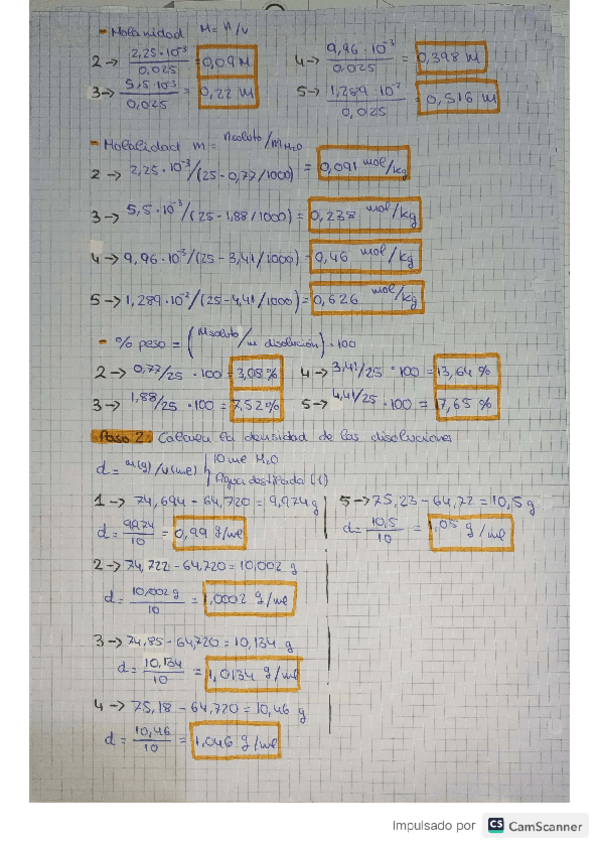 - Molaridad M = n/v
2 -> 2,25·10⁻³/0,025 = 0,09 M
4 -> 9,96·10⁻³/0,025 = 0,398 M
3 -> 5,5·10⁻³/0,025 = 0,22 M
5 -> 1,289·10⁻²/0,025 = 0,516 M
- Molalidad m = nsoluto/mH₂O
2 -> 2,25·10⁻³/(25-0,77/1000) = 0,091 mol/kg
3 -> 5,5·10⁻³/(25-1,88/1000) = 0,238 mol/kg
4 -> 9,96·10⁻³/(25-3,41/1000) = 0,46 mol/kg
5 -> 1,289·10⁻²/(25-4,41/1000) = 0,626 mol/kg
- % peso = (msoluto/m disolución)·100
2 -> 0,77/25 · 100 = 3,08 %
4 -> 3,41/25 · 100 = 13,64 %
3 -> 1,88/25 · 100 = 7,52 %
5 -> 4,41/25 · 100 = 17,65 %
Paso 2: Calcula la densidad de las disoluciones
d = m(g)/v(ml)
10 ml H₂O
Agua destilada (1)
1 -> 74,694 - 64,720 = 9,974 g
d = 9,974/10 = 0,99 g/ml
2 -> 74,722 - 64,720 = 10,002 g
d = 10,002 g/10 = 1,0002 g/ml
3 -> 74,85 - 64,720 = 10,134 g
d = 10,134/10 = 1,0134 g/ml
4 -> 75,18 - 64,720 = 10,46 g
d = 10,46/10 = 1,046 g/ml
5 -> 75,23 - 64,72 = 10,5 g
d = 10,5/10 = 1,05 g/ml
Impulsado por CS CamScanner